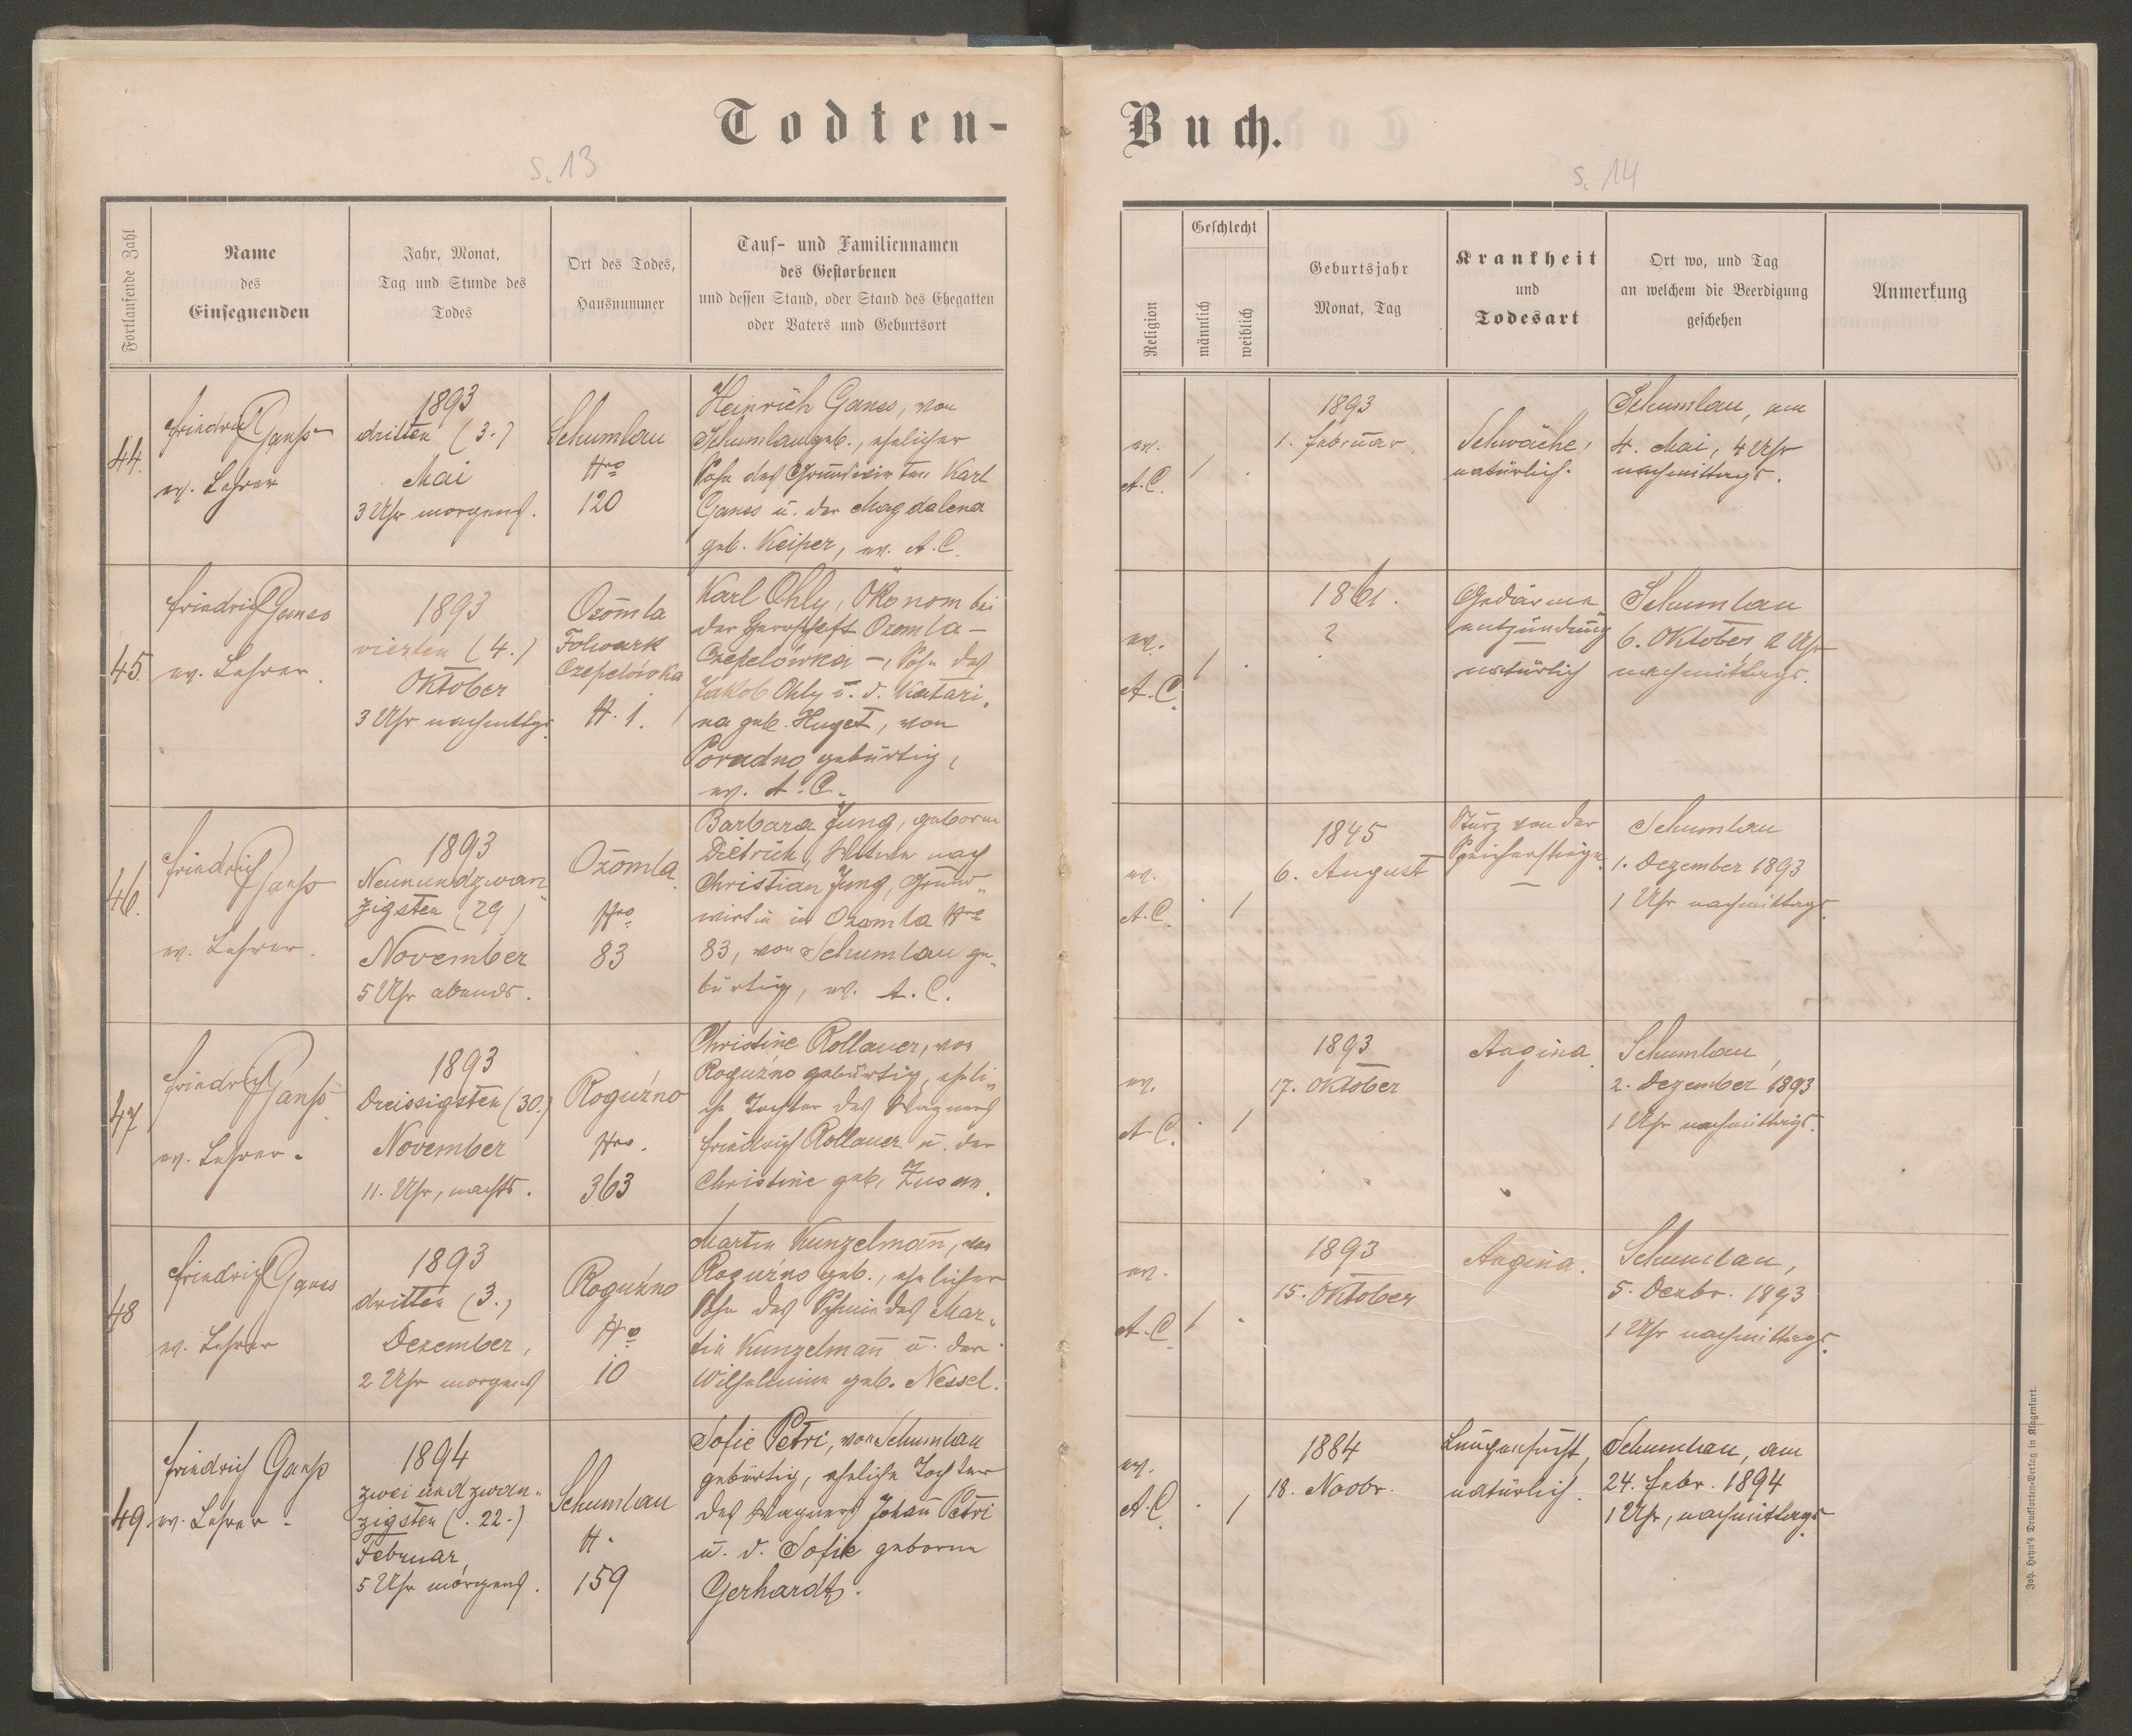 Todten-
Buch.
s. 13
s. 14
Fortlaufende Zahl
Name
des
Einsegnenden
Jahr, Monat,
Tag und Stunde des
Todes
Ort des Todes,
Hausnummer
Tauf- und Familiennamen
des Gestorbenen
und dessen Stand, oder Stand des Ehegatten
oder Vaters und Geburtsort
Religion
Geschlecht
männlich
weiblich
Geburtsjahr
Monat, Tag
Krankheit
und
Todesart
Ort wo, und Tag
an welchem die Beerdigung
geschehen
Anmerkung
44.
Friedrich Ganß
ev. Lehrer
1893
dritten (3.)
Mai
3 Uhr morgens.
Schumlau
Nro
120
Heinrich Ganss, von
Schumlau geb., ehelicher
Sohn des Grundwirten Karl
Ganss u. der Magdalena
geb. Keiper, ev. A. C.
ev.
A. C.
1 .
1893
1. Februar.
Schwäche,
natürlich.
Schumlau, am
4. Mai, 4 Uhr
nachmittags.
45.
Friedrich Ganss
ev. Lehrer.
1893
vierten (4.)
Oktober
3 Uhr nachmittgs.
Ozomla
Folwark
Czepelówka
N. 1.
Karl Ohly, Ökonom bei
der Herrschaft Ozomla -
Czepelówka -, Sohn des
Jakob Ohly u. d. Katari-
na geb. Huget, von
Poradno gebürtig,
ev. A. C.
ev.
A. C.
1 .
1861.
?
Gedärme
entzündung
natürlich
Schumlau
6. Oktober, 2 Uhr
nachmittags.
46.
Friedrich Ganß
ev. Lehrer.
1893
Neunundzwan
zigsten (29)
November
5 Uhr abends.
Ozomla.
Nro
83
Barbara Jung, geborne
Dietrich, Witwe nach
Christian Jung, Grund-
wirtin in Ozomla Nro
83, von Schumlau ge-
bürtig, ev. A. C.
ev.
A. C.
. 1
1845
6. August
Sturz von der
Speicherstiege.
Schumlau
1. Dezember 1893
1 Uhr nachmittags.
47
Friedrich Ganß
ev. Lehrer.
1893
Dreissigsten (30.)
November
11. Uhr, nachts.
Roguźno
Nro.
363
Christine Rollauer, von
Roguźno gebürtig, eheli-
che Tochter des Wagners
Friedrich Rollauer u. der
Christine geb. Zusan.
ev.
A. C.
. 1
1893
17. Oktober
Angina
Schumlau,
2. Dezember 1893
1 Uhr nachmittags.
48
Friedrich Ganss
ev. Lehrer
1893
dritten (3.)
Dezember,
2 Uhr morgens
Roguźno
No
10
Martin Kunzelmann, von
Roguźno geb., ehelicher
Sohn des Schmiedes Mar-
tin Kunzelmann u. der
Wilhelmine geb. Nessel.
ev.
A. C.
1 .
1893
15. Oktober
Angina.
Schumlau,
5. Dezbr. 1893
1 Uhr nachmittags.
49.
Friedrich Ganß
ev. Lehrer.
1894
zweiundzwan-
zigsten (. 22.)
Februar,
5 Uhr morgens.
Schumlau
N.
159
Sofie Petri, von Schumlau
gebürtig, eheliche Tochter
des Wagners Johann Petri
u. d. Sofie geborne
Gerhardt.
ev.
A. C.
. 1
1884
18. Novbr.
Lungensucht,
natürlich.
Schumlau, am
24. Febr. 1894
1 Uhr, nachmittags.
Joh. Heyn's Drucksorten-Verlag in Klagenfurt.